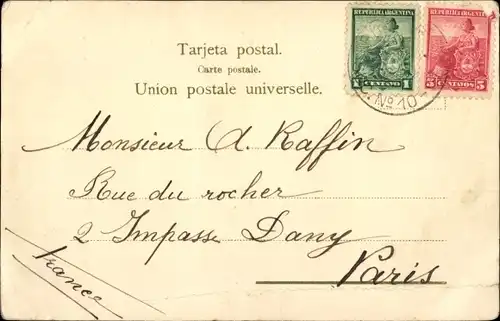 REPUBLICA ARGENTINA
1 CENTAVO 1
REPUBLICA ARGENTINA
5 CENTAVOS 5
Nº 10
Tarjeta postal.
Carte postale.
Union postale universelle.
Monsieur A. Raffin
Rue du rocher
2 Impasse Dany
Paris
France